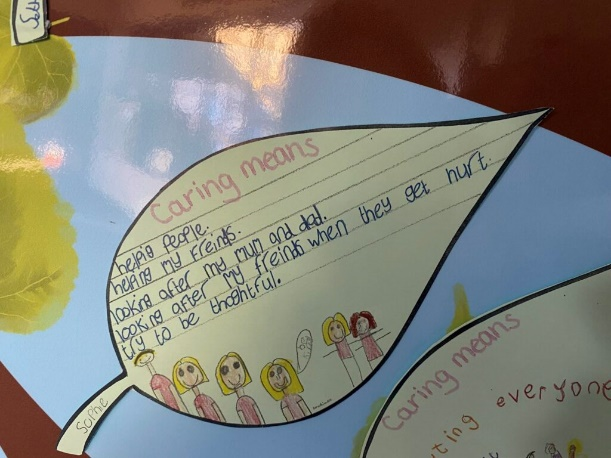 Caring means
helping people.
helping my freinds.
looking after my mum and dad.
looking after my freinds when they get hurt.
try to be thoghtful.
Sophie
Caring means
everyone